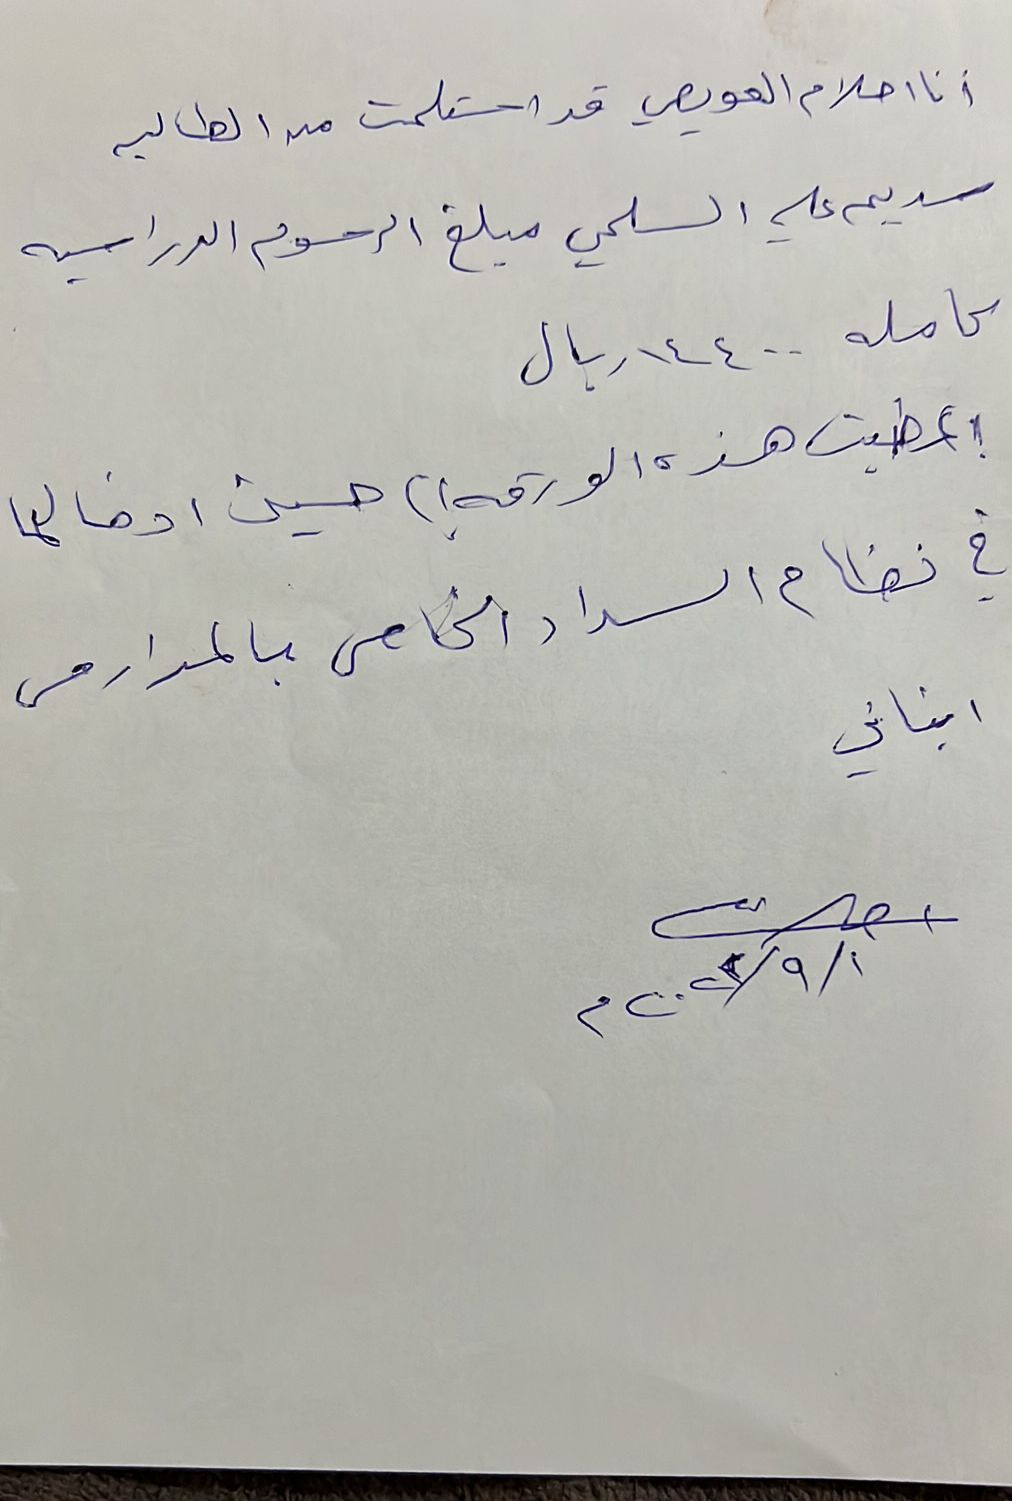 أنا احلام العويضي قد استلمت من الطالبه
سديم علي السلمي مبلغ الرسوم الدراسيه
كامله ١٤٤٠٠ ريال
اعطيت هذه الورقه الى حسين ادخالها
في نظام السداد الخاص بالمدارس
ابنائي
١/٩/ م